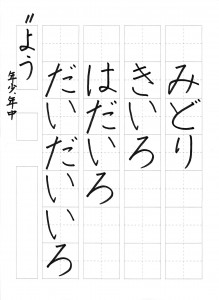 みどり
きいろ
はだいろ
だいだいいろ
〃よう
年少・年中